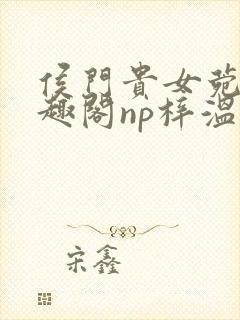 侯門貴女菀
趣閣np梓溫
宋鑫